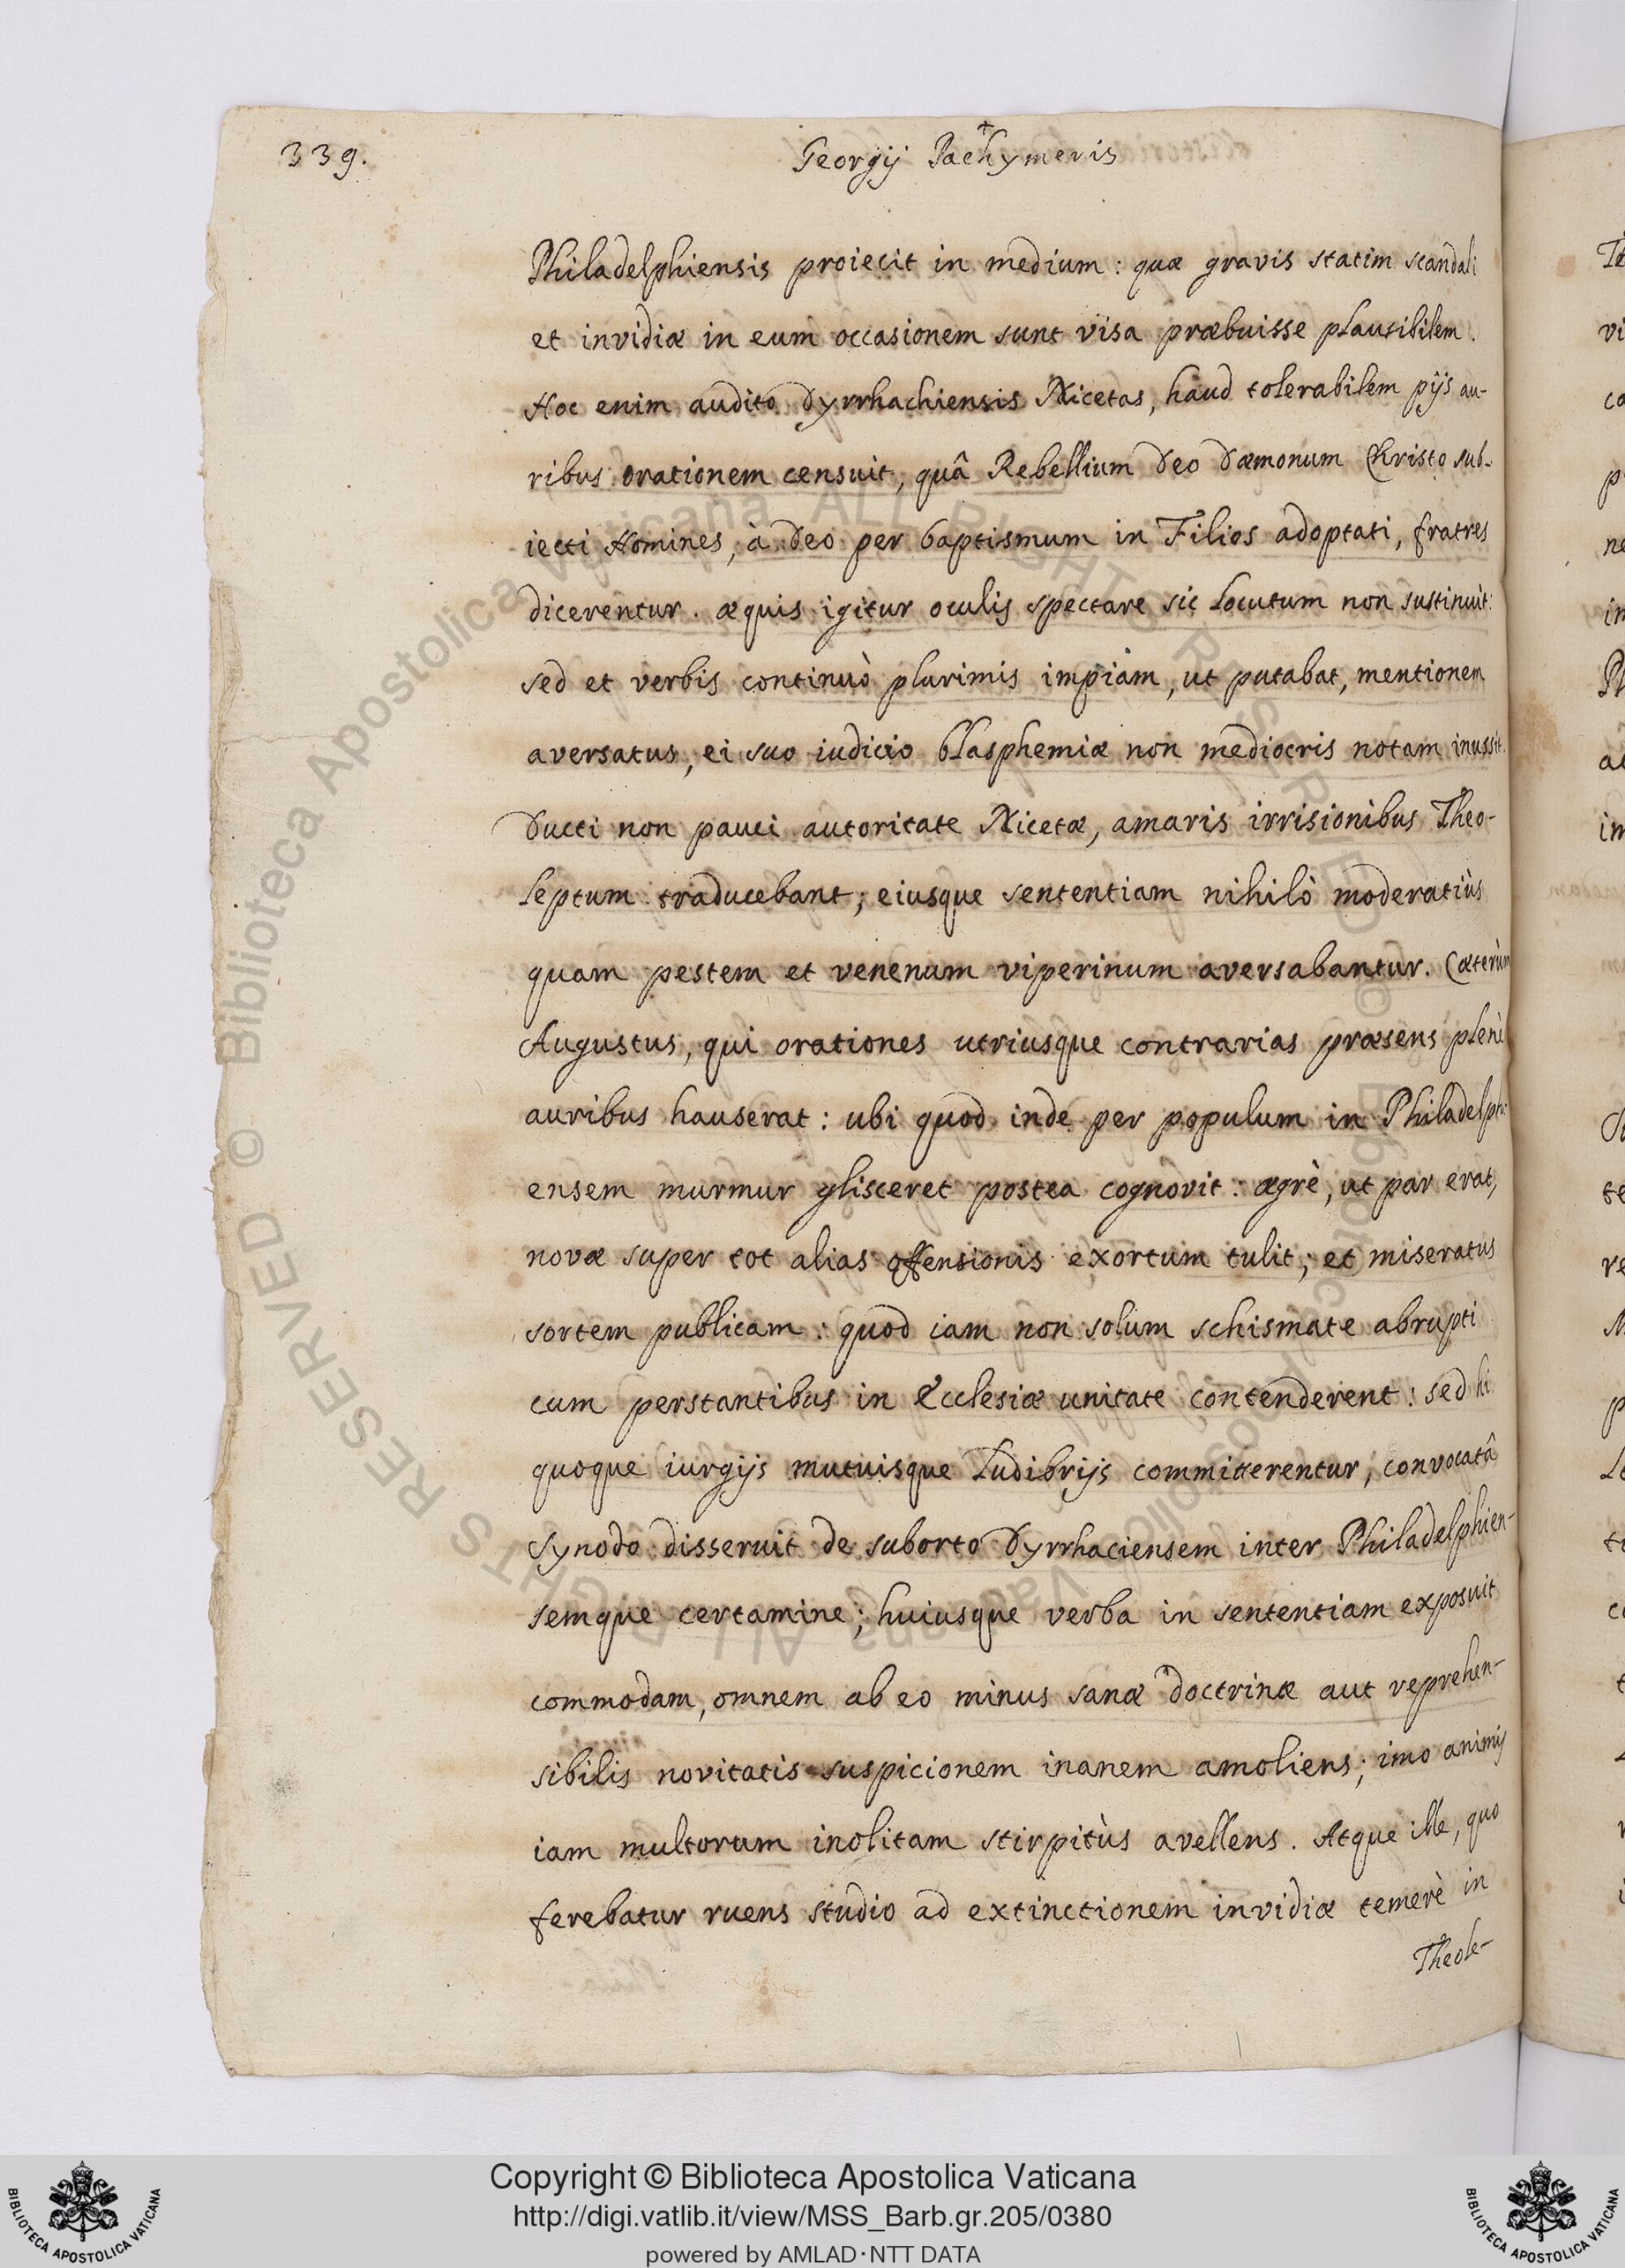 339.
Georgij Pachymeris
Philadelphiensis proiecit in medium: quæ gravis statim scandali
et invidiæ in eum occasionem sunt visa præbuisse plausibilem.
Hoc enim audito Dyrrhachiensis Nicetas, haud tolerabilem pijs au-
ribus orationem censuit, quâ Rebellium Deo Dæmonum Christo sub-
iecti Homines, à Deo per baptismum in Filios adoptati, fratres
dicerentur. æquis igitur oculis spectare sic locutum non sustinuit:
sed et verbis continuò plurimis impiam, ut putabat, mentionem
aversatus, ei suo iudicio blasphemiæ non mediocris notam inussit.
Ducti non pauci autoritate Nicetæ, amaris irrisionibus Theo-
leptum traducebant; eiusque sententiam nihilò moderatiùs
quam pestem et venenum viperinum aversabantur. Cæterùm
Augustus, qui orationes utriusque contrarias præsens plenè
auribus hauserat: ubi quod inde per populum in Philadelphi-
ensem murmur glisceret postea cognovit: ægrè, ut par erat,
novæ super tot alias offensionis exortum tulit; et miseratus
sortem publicam: quod iam non solum schismate abrupti
cum perstantibus in Ecclesiæ unitate contenderent: sed hi
quoque iurgijs mutuisque ludibrijs committerentur, convocatâ
Synodo disseruit de suborto Dyrrhaciensem inter Philadelphien-
semque certamine; huiusque verba in sententiam exposuit
commodam, omnem ab eo minus sanæ doctrinæ aut reprehen-
sibilis novitatis suspicionem inanem amoliens; imo animis
iam multorum inolitam stirpitùs avellens. Atque ille, quo
ferebatur ruens studio ad extinctionem invidiæ temerè in
Theole-
© Biblioteca Apostolica Vaticana ALL RIGHTS RESERVED © Biblioteca Apostolica Vaticana ALL RIGHTS RESERVED
Copyright © Biblioteca Apostolica Vaticana
http://digi.vatlib.it/view/MSS_Barb.gr.205/0380
powered by AMLAD·NTT DATA
BIBLIOTECA APOSTOLICA VATICANA
BIBLIOTECA APOSTOLICA VATICANA